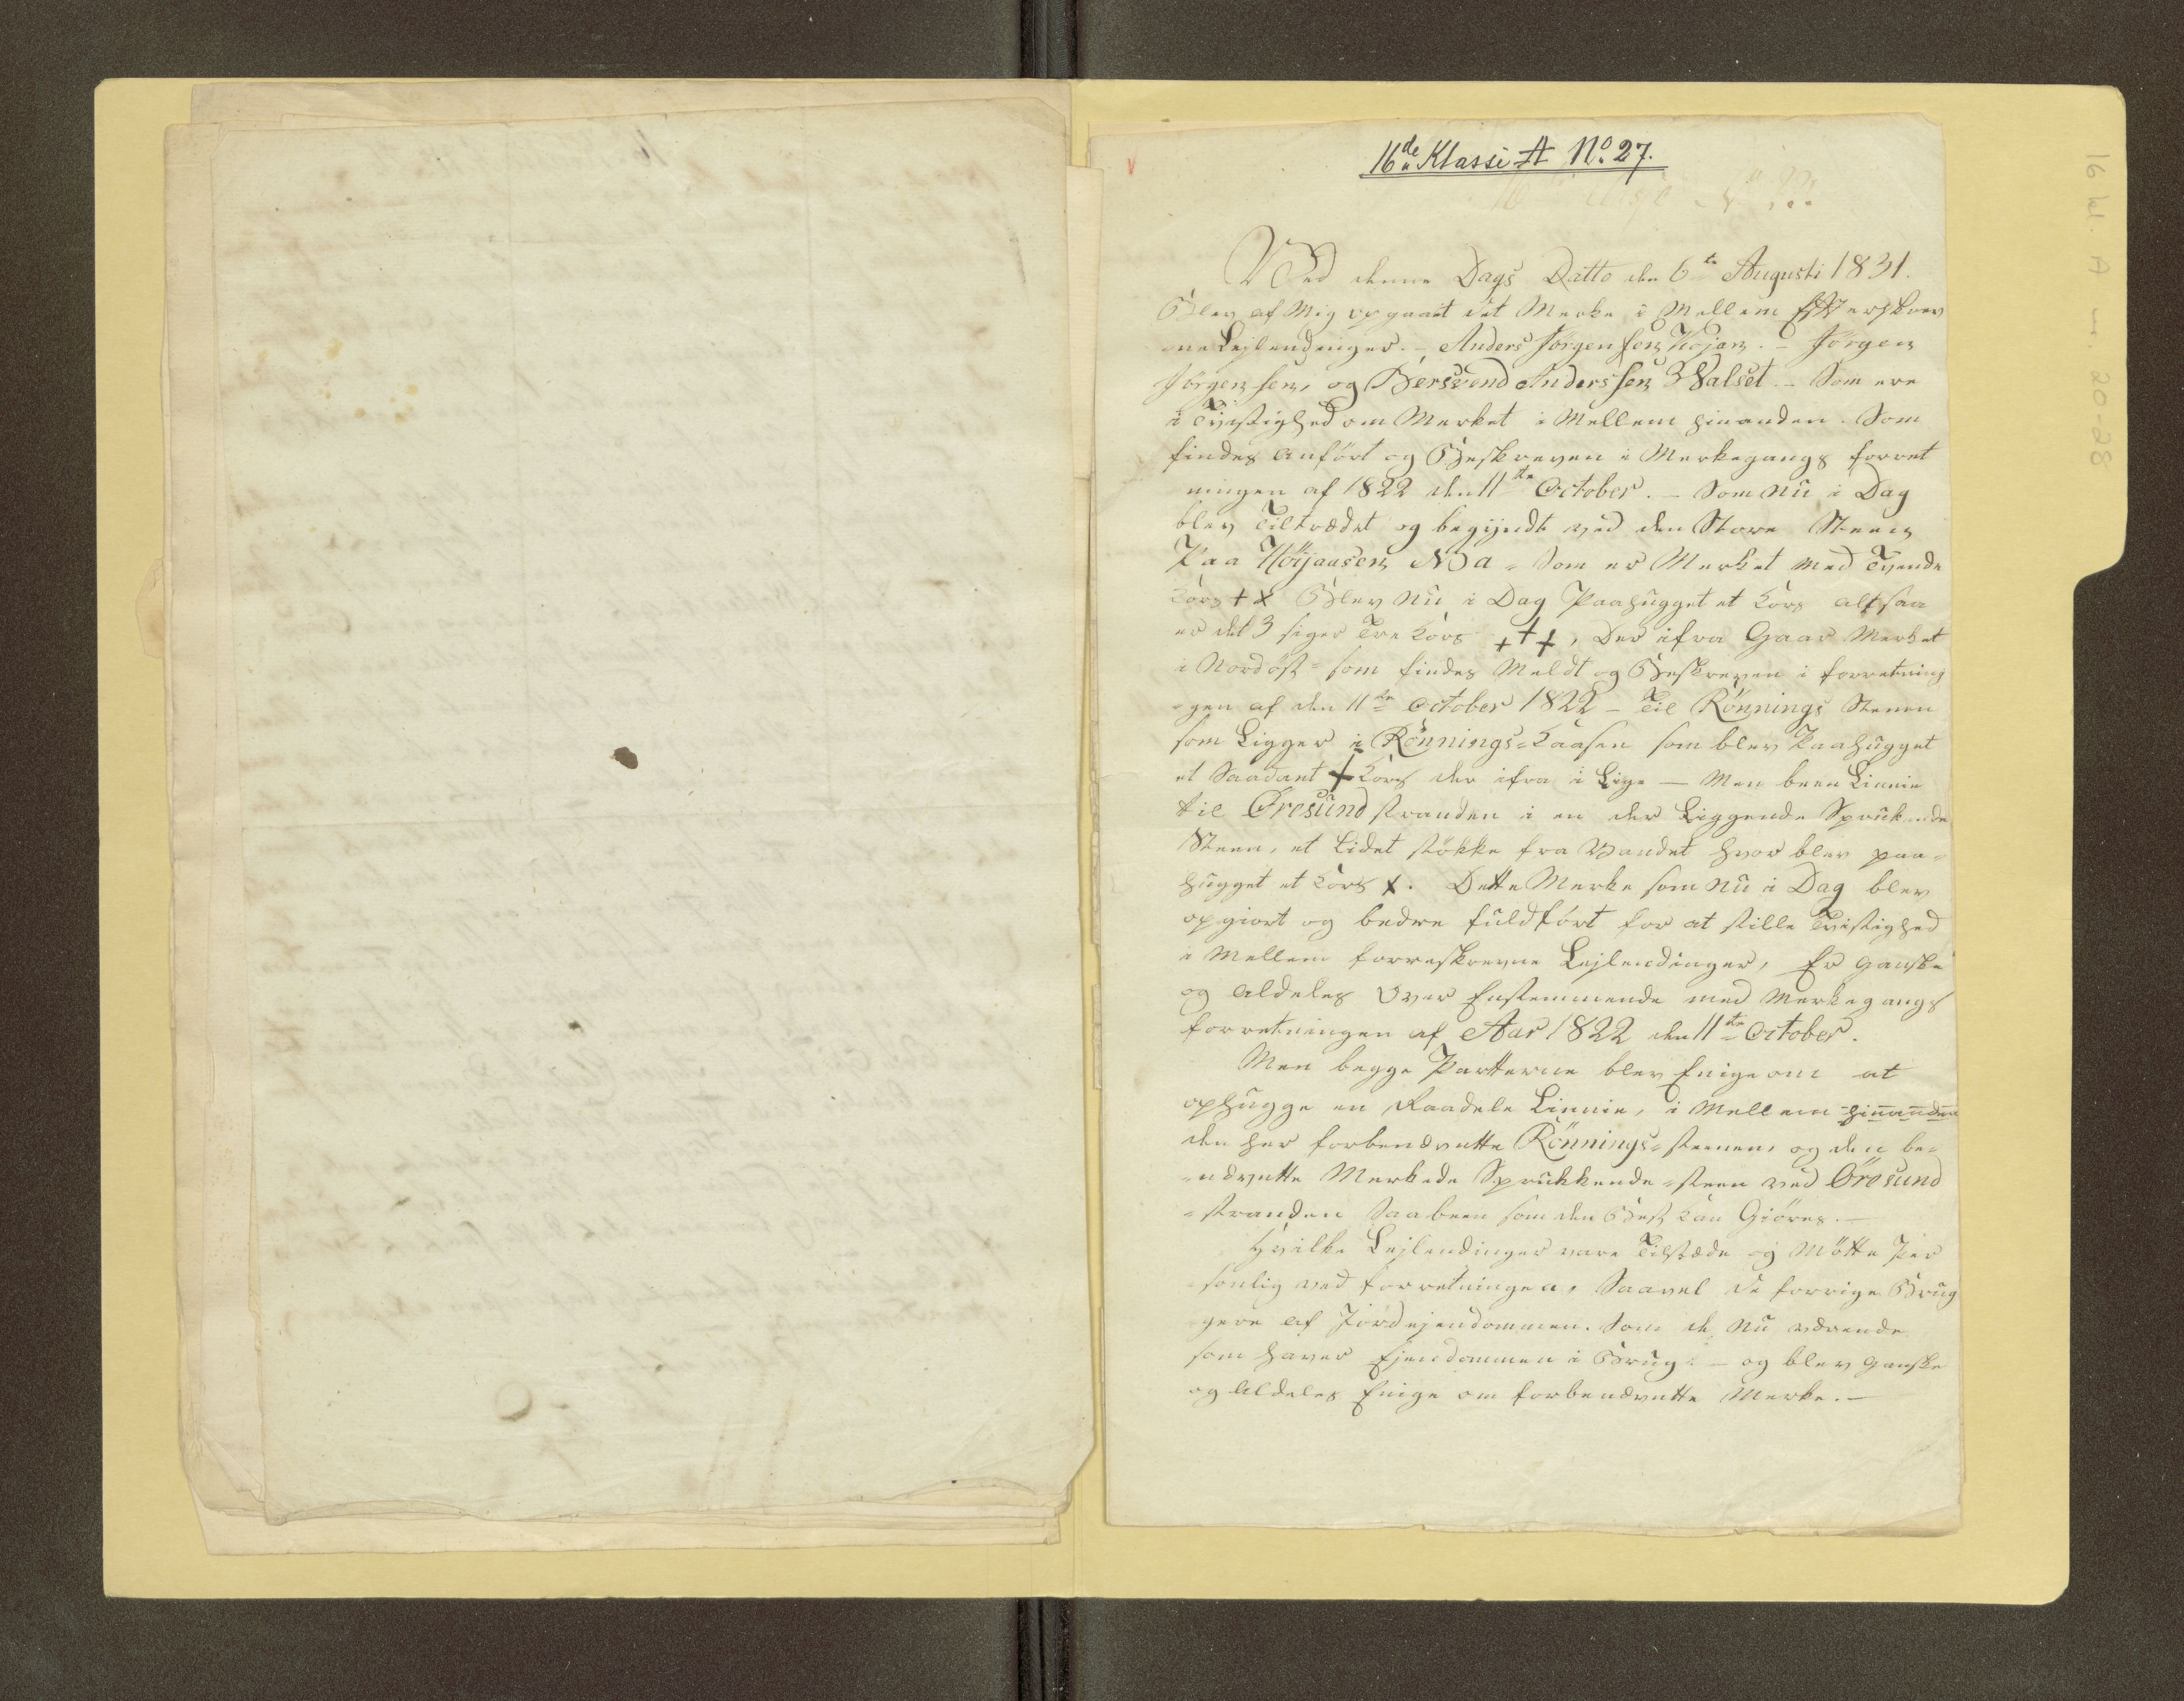 16de Klasse A No. 27.
Ved denne Dags Datto den 6te Augusti 1831.
Blev af Mig opgaaet det Merke i Mellem Efterskrev
ne Lejlendinger. - Anders Jörgensen Kojan. - Jörgen
Jörgensen, og Bersvend Anderssen Walset. - Som ere
i Tvistighed om Merket i Mellem hinanden. Som
findes anfört og Beskreven i Merkegangs forret
ningen af 1822 den 11te October. - Som nu i Dag
blev Tiltrædet og begyndt ved den Store Steen
Paa Höjaasen Som er Merket med Tvende
Kors + x Blev nu i Dag Paahugget et Kors altsaa
er det 3 siger Tre Kors + + +, Der ifra Gaar Merket
i Nordöst = som findes Meldt og Beskreven i forretning
-gen af den 11te October 1822 - Til Rönnings Stenen
som Ligger i Rönnings=Kaasen som blev Paahugget
et Saadant + Kors der ifra i Lige - Men been Linnie
til Öresund stranden i en der Liggende Sprukende
Steen, et Lidet stökke fra Vandet hvor blev paa=
hugget et Kors x. Dette Merke som nu i Dag blev
opgiort og bedre fuldfört for at stille Tvistighed
i Mellem forreskrevne Lejlendinger, Er ganske
og aldeles Over Enstemmende med Merkegangs
forretningen af Aar 1822 den 11te October.
Men begge Partterne blev Enige om at
ophugge en Raadele Linnie, i Mellem hinanden
den her forbenævntte Rönnings=steenen, og den be=
=nævntte Merkede Sprukkende=steen ved Öresund
=stranden Saa been som den Best kan Giöres. -
Hvilke Lejlendinger vare Tilstæde og Mötte Per
sonlig ved forretningen, Saavel de forrige Brug
gere af Jordejendommen. Som de nu værende
som haver Ejendommen i Brug. - og blev ganske
og Aldeles Enige om forbenævntte Merke. -
16 kl. A nr. 20-28